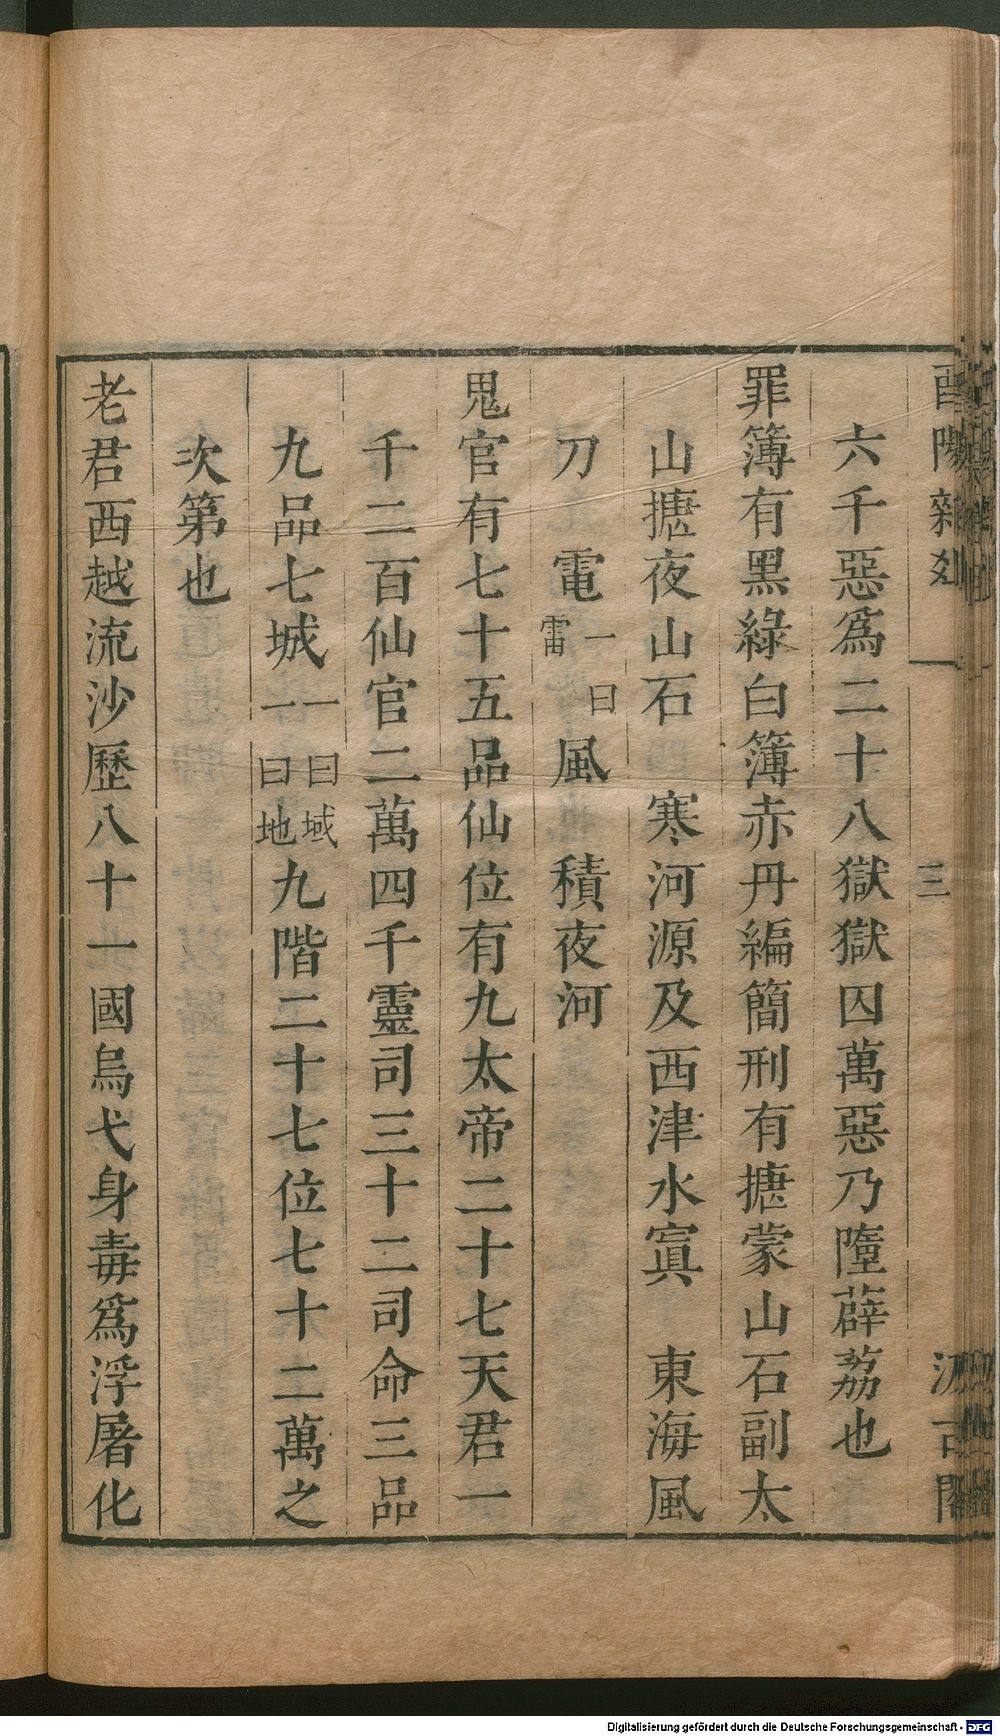 酉陽雜俎 三 汲古閣
六千惡爲二十八獄獄囚萬惡乃墮薜荔也
罪簿有黑綠白簿赤丹編簡刑有搪蒙山石副太
山搪夜山石 寒河源及西津水寘 東海風
刀 電一曰雷風 積夜河
鬼官有七十五品仙位有九太帝二十七天君一
千二百仙官二萬四千靈司三十二司命三品
九品七城一曰域一曰地九階二十七位七十二萬之
次第也
老君西越流沙歷八十一國烏弋身毒爲浮屠化
Digitalisierung gefördert durch die Deutsche Forschungsgemeinschaft - DFG